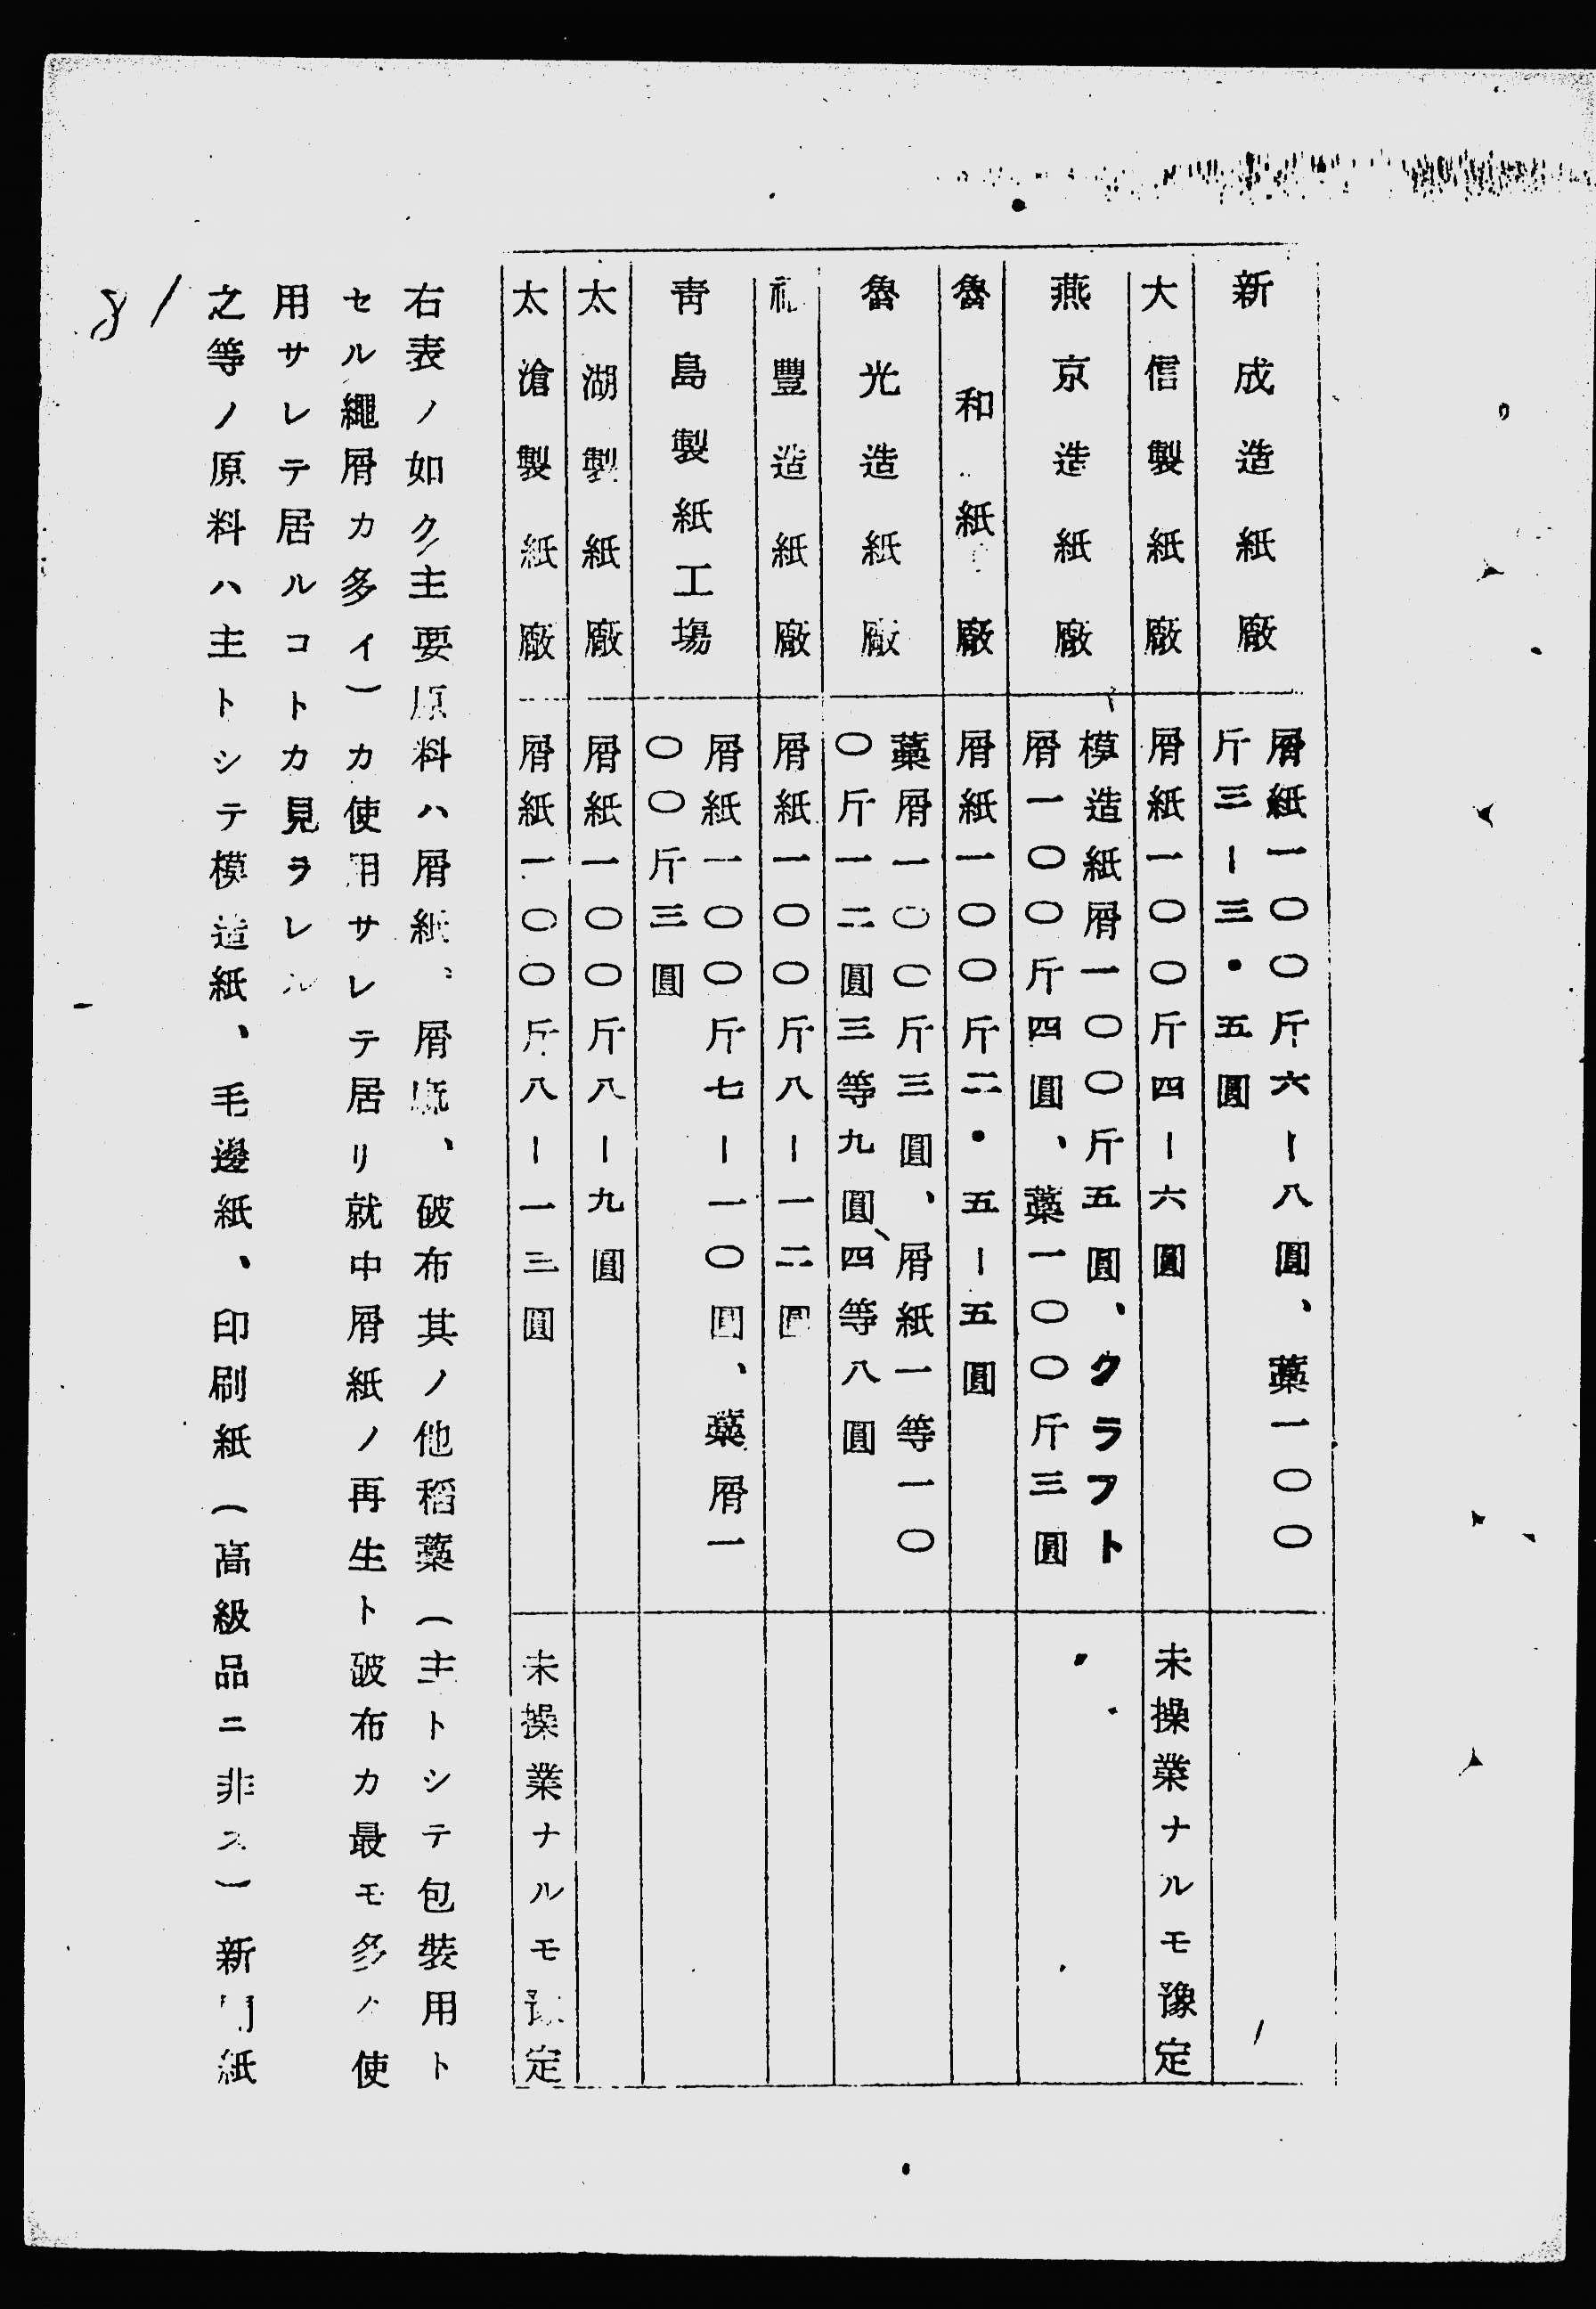 新成造紙廠
屑紙一〇〇斤六ー八圓、藁一〇〇
斤三ー三・五圓
大信製紙廠
屑紙一〇〇斤四ー六圓
未操業ナルモ豫定
燕京造紙廠
模造紙屑一〇〇斤五圓、クラフト
屑一〇〇斤四圓、藁一〇〇斤三圓
魯和紙廠
屑紙一〇〇斤二・五ー五圓
魯光造紙廠
藁屑一〇〇斤三圓、屑紙一等一〇
〇斤一二圓三等九圓四等八圓
豐造紙廠
屑紙一〇〇斤八ー一二圓
青島製紙工場
屑紙一〇〇斤七ー一〇圓、藁屑一
〇〇斤三圓
太湖製紙廠
屑紙一〇〇斤八ー九圓
太滄製紙廠
屑紙一〇〇斤八ー一三圓
未操業ナルモ豫定
右表ノ如ク主要原料ハ屑紙、屑麻、破布其ノ他稻藁(主トシテ包裝用ト
セル繩屑カ多イ)カ使用サレテ居リ就中屑紙ノ再生ト破布カ最モ多ク使
用サレテ居ルコトカ見ヲレル
之等ノ原料ハ主トシテ模造紙、毛邊紙、印刷紙(高級品ニ非ス)新聞紙
81